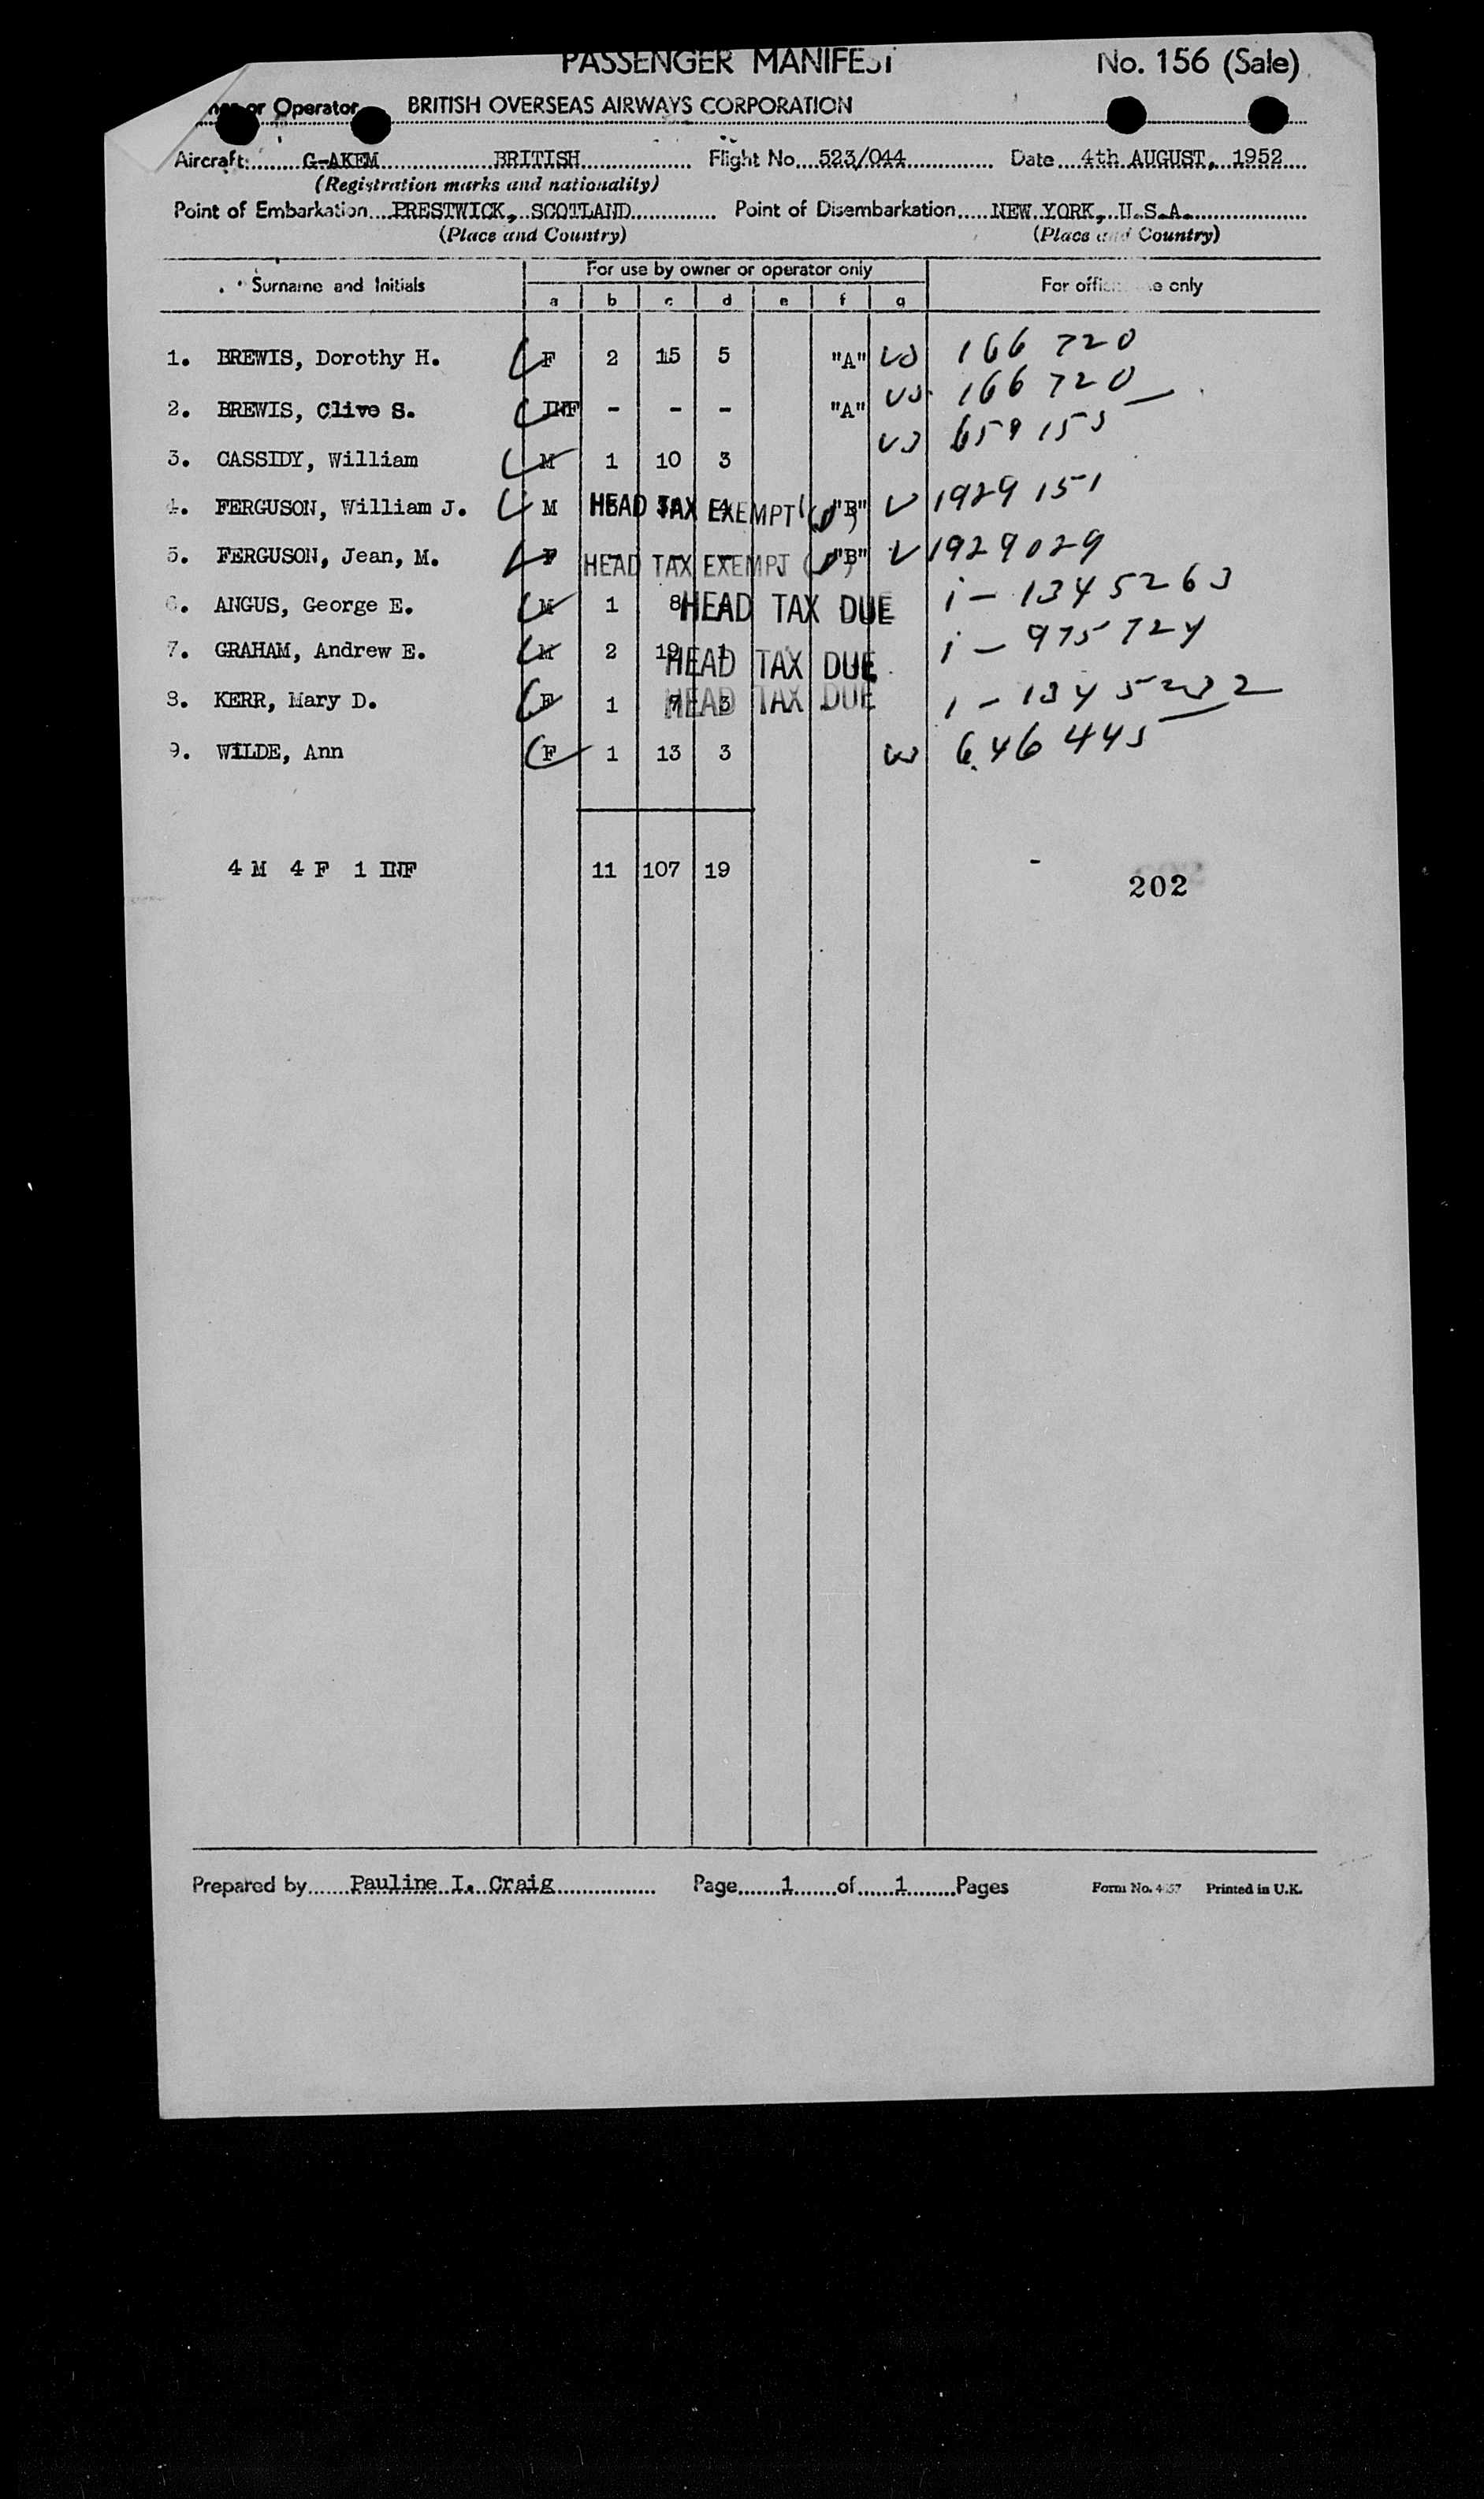 PASSENGER MANIFEST No. 156 (Sale)
or Operator BRITISH OVERSEAS AIRWAYS CORPORATION
Aircraft: G-AKEM BRITISH Flight No. 523/044 Date 4th AUGUST, 1952
(Registration marks and nationality)
Point of Embarkation PRESTWICK, SCOTLAND Point of Disembarkation NEW YORK, U.S.A.
(Place and Country) (Place and Country)
Surname and Initials For use by owner or operator only For only
a b c d e f g
1. BREWIS, Dorothy H. F 2 15 5 "A" US 166 720
2. BREWIS, Clive S. INF - - - "A" US 166 720
3. CASSIDY, William M 1 10 3 US 659 153
4. FERGUSON, William J. M HEAD TAX EXEMPT "B" V 1929 151
5. FERGUSON, Jean, M. F HEAD TAX EXEMPT "B" V 1929029
6. ANGUS, George E. M 1 8 HEAD TAX DUE i - 1345263
7. GRAHAM, Andrew E. M 2 HEAD TAX DUE i - 975724
8. KERR, Mary D. F 1 7 3 HEAD TAX DUE i - 1345232
9. WILDE, Ann F 1 13 3 US 646 445
4 M 4 F 1 INF 11 107 19
202
Prepared by Pauline I. Craig Page 1 of 1 Pages Form No. Printed in U.K.